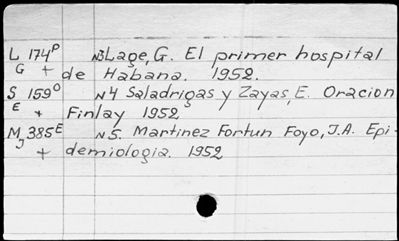 L 174P N3 Lage, G. El primer hospital
G + de Habana. 1952.
S 159O N4 Saladrigas y Zayas, E. Oracion
E + Finlay 1952
M 385E N5. Martinez Fortun Foyo, J.A. Epi-
J + demiologia. 1952